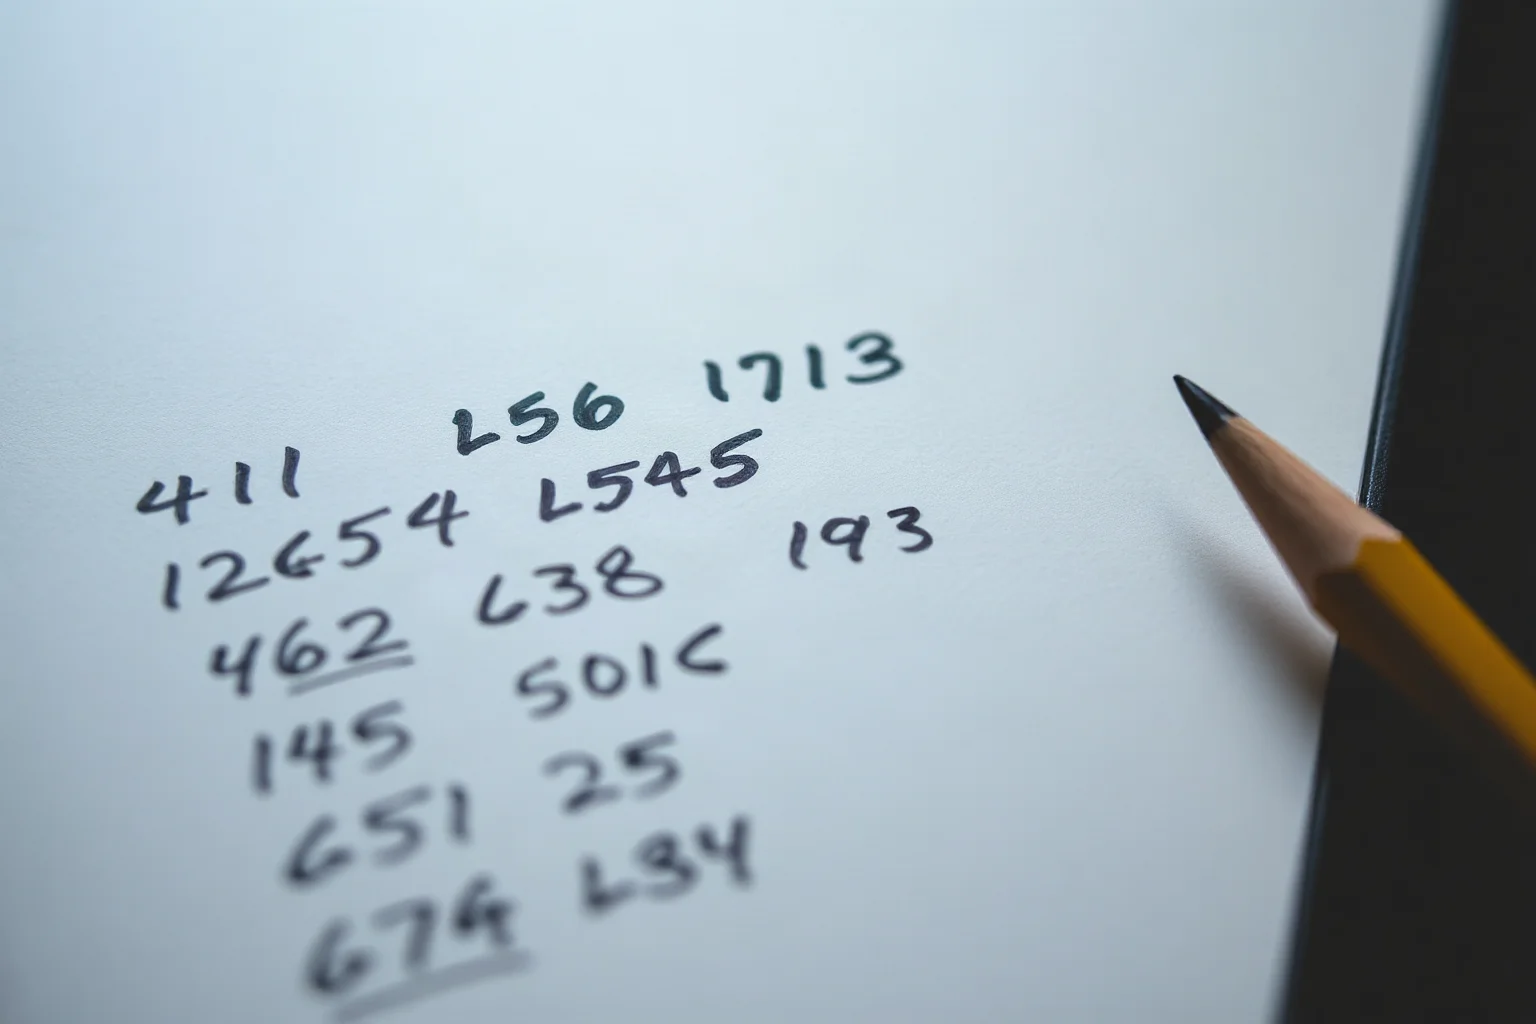 L56 1713
411
12654 L545
462 638 193
145 501C
651 25
674 L34